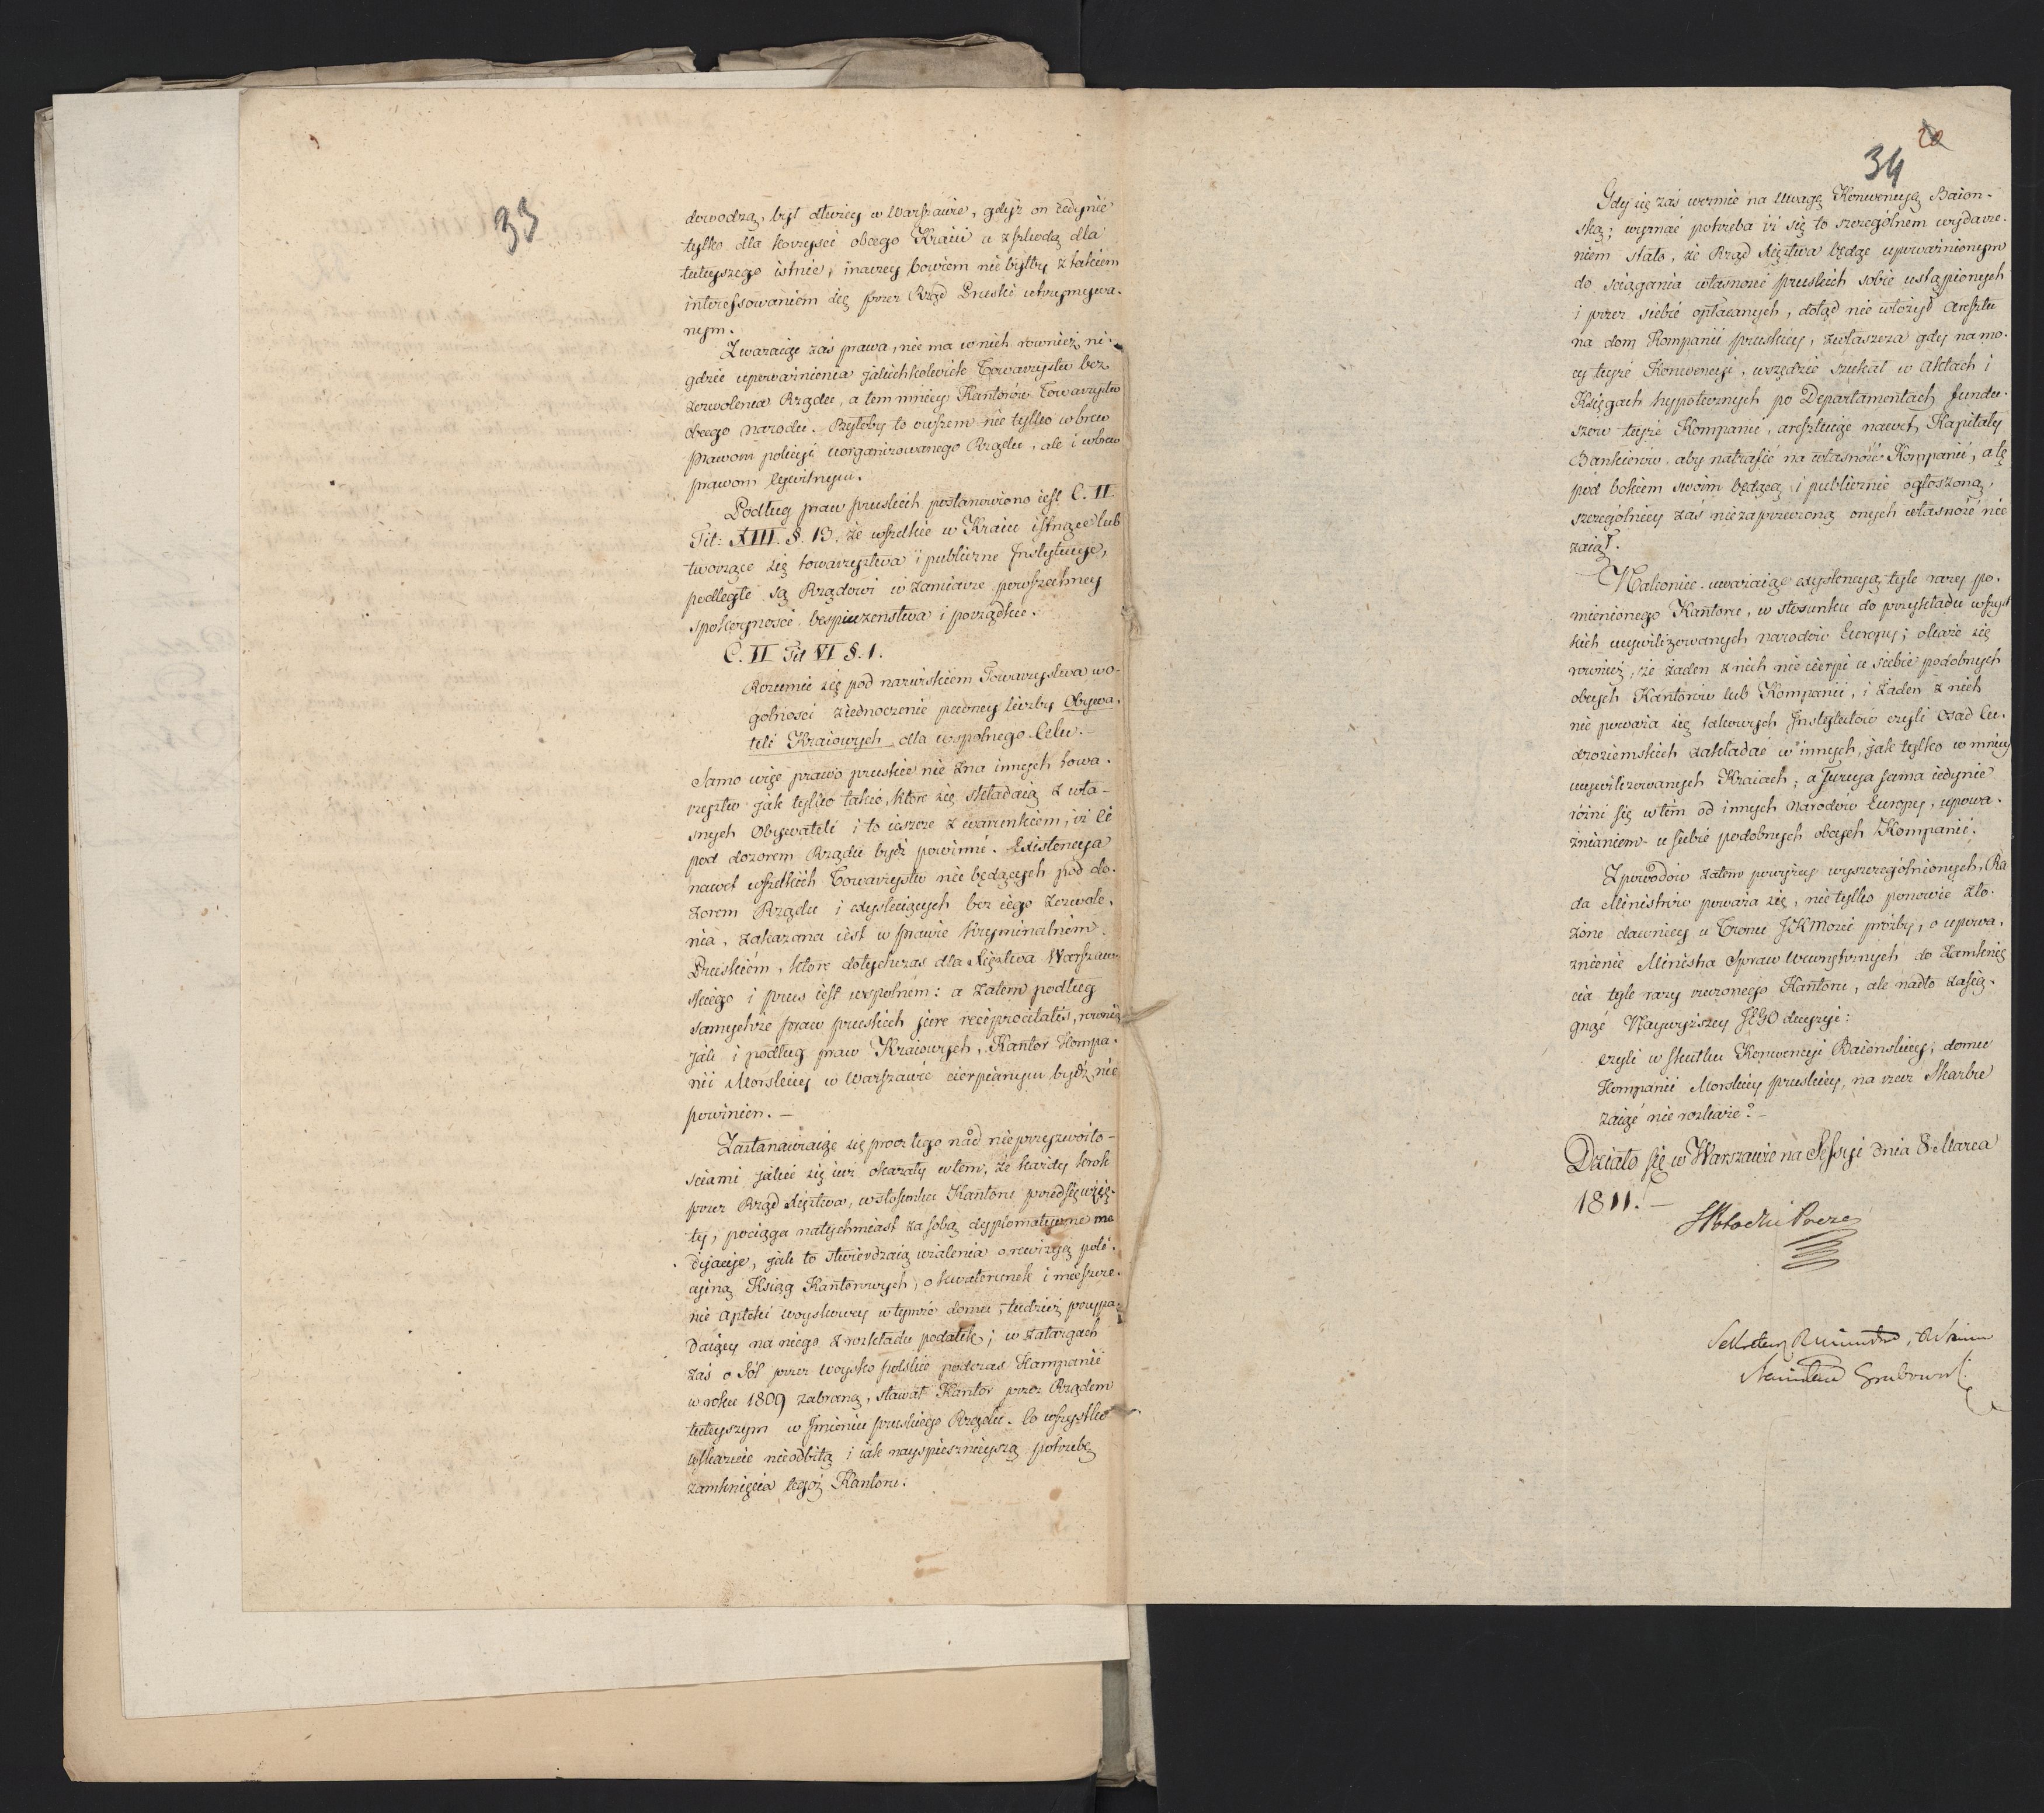 33
dowodzą, był dłużey w Warszawie, gdyż on iedynie
tylko dla korzyści obcego Kraiu a z szkodą dla
tuteyszego istnie, inaczey bowiem nie byłby z takiem
interessowaniem się przez Rząd Pruski utrzymywa-
nym.
Zważaiąc zaś prawa, nie ma w nich również ni-
gdzie upoważnienia jakichkolwiek Towarzystw bez
zezwolenia Rządu, a tem mniey Kantorów Towarzystw
obcego narodu. Byłoby to owszem nie tylko wbrew
prawom policyi uorganizowanego Rządu, ale i wbrew
prawom cywilnym.
Podług praw pruskich postanowiono iest C. II
Tit: XIII. §. 13. że wszelkie w Kraiu istnące lub
tworzące się towarzystwa i publiczne Instytucye,
podległe są Rządowi w zamiarze powszechney
spokoyności bespieczenstwa i porządku.
C. II Tit VI §. 1.
Rozumie się pod nazwiskiem Towarzystwa wo-
gólności ziednoczenie pewney liczby Obywa-
teli Kraiowych dla wspolnego Celu. –
Samo więc prawo pruskie nie zna innych towa-
rzystw jak tylko takie, które się składaią z wła-
snych Obywateli i to ieszcze z warunkiem, iż ci
pod dozorem Rządu bydź powinni. Existencya
nawet wszelkich Towarzystw nie będących pod do-
zorem Rządu i exystuiących bez iego zezwole-
nia, zakazana iest w prawie kryminalnem
Pruskiém, które dotychczas dla Xięztwa Warszaw-
skiego i Prus iest wspolnem: a zatem podług
samychże praw pruskich jure reciprocitatis, rownie
jak i podług praw Kraiowych, Kantor Kompa-
nii Morskiey w Warszawie cierpianym bydź nie
powinien. –
Zastanawiaiąc się procz tego nad nieprzyzwoito-
sciami jakie się iuż okazały w tem, że każdy krok
przez Rząd Xięztwa, w stosunku Kantoru przedsięwzię-
ty, pociąga natychmiast za sobą dyplomatyczne me
dyacye, jak to stwierdzaią użalenia o rewizyą poli-
cyiną Ksiąg Kantorowych, o kwaterunek i mieszcze-
nie apteki woyskowey w tymże domu, tudzież przypa-
daiący na niego z rozkładu podatek; w zatargach
zaś o Sól przez woysko polskie podczas Kampanii
w roku 1809 zabraną, stawał Kantor przez Rządem
tuteyszym w Jmieniu pruskiego Rządu. Co wszystko
wskazuie nieodbitą i iak nayspiesznieyszą potrzebę
zamknięcia tegoż Kantoru.
34
20
Gdy się zaś wezmie na uwagę Konwencyą Baion-
ską; wyznać potrzeba iż się to szczególnem wydarze-
niem stało, że Rząd Xięztwa będąc upoważnionym
do sciągania własnosci pruskich sobie ustąpionych
i przez siebie opłacanych, dotąd nie włożył Aresztu
na dom Kompanii pruskiey, zwłaszcza gdy na mo-
cy teyże Konwencyi, wszędzie szukał w Aktach i
Księgach hypotecznych po Departamentach fundu-
szow teyże Kompanii, aresztuiąc nawet Kapitały
Bankierów, aby natrafić na własność Kompanii, a tę
pod bokiem swoim będącą i publicznie ogłoszoną,
szczególniey zaś niezaprzeczoną onych własność nie
zaiął.
Nakoniec uważaiąc exystencyą tyle razy po-
mienionego Kantoru, w stosunku do przykładu wszyst
kich ucywilizowanych narodów Europy; okaże się
rownież, że żaden z nich nie cierpi u siebie podobnych
obcych Kantorów lub Kompanii, i żaden z nich
nie poważa się takowych Jnstytutów czyli Osad Cu-
dzoziemskich zakładać w innych, jak tylko w mniey
ucywilizowanych Kraiach; a Turcya sama iedynie
rózni się w tém od innych Narodów Europy, upowa-
żnianiem u siebie podobnych obcych Kompanii.
Z powodów zatem powyżey wyszczególnionych, Ra
da Ministrów poważa się, nie tylko ponowić zło-
żone dawniey u Tronu JKMości prożby, o upowa-
żnienie Ministra Spraw Wewnętrznych do zamknię
cia tyle razy rzeczonego Kantoru, ale nadto zasię-
gnąć Naywyższey JEGO decyzyi:
czyli w skutku Konwencyi Baionskiey; domu
Kompanii Morskiey pruskiey, na rzecz Skarbu
zaiąć nie rozkaże? –
Działo się w Warszawie na Sessyi dnia 8 Marca
1811. –
S. Potocki Prezes
Sekretarz
Stanisław Grabowski